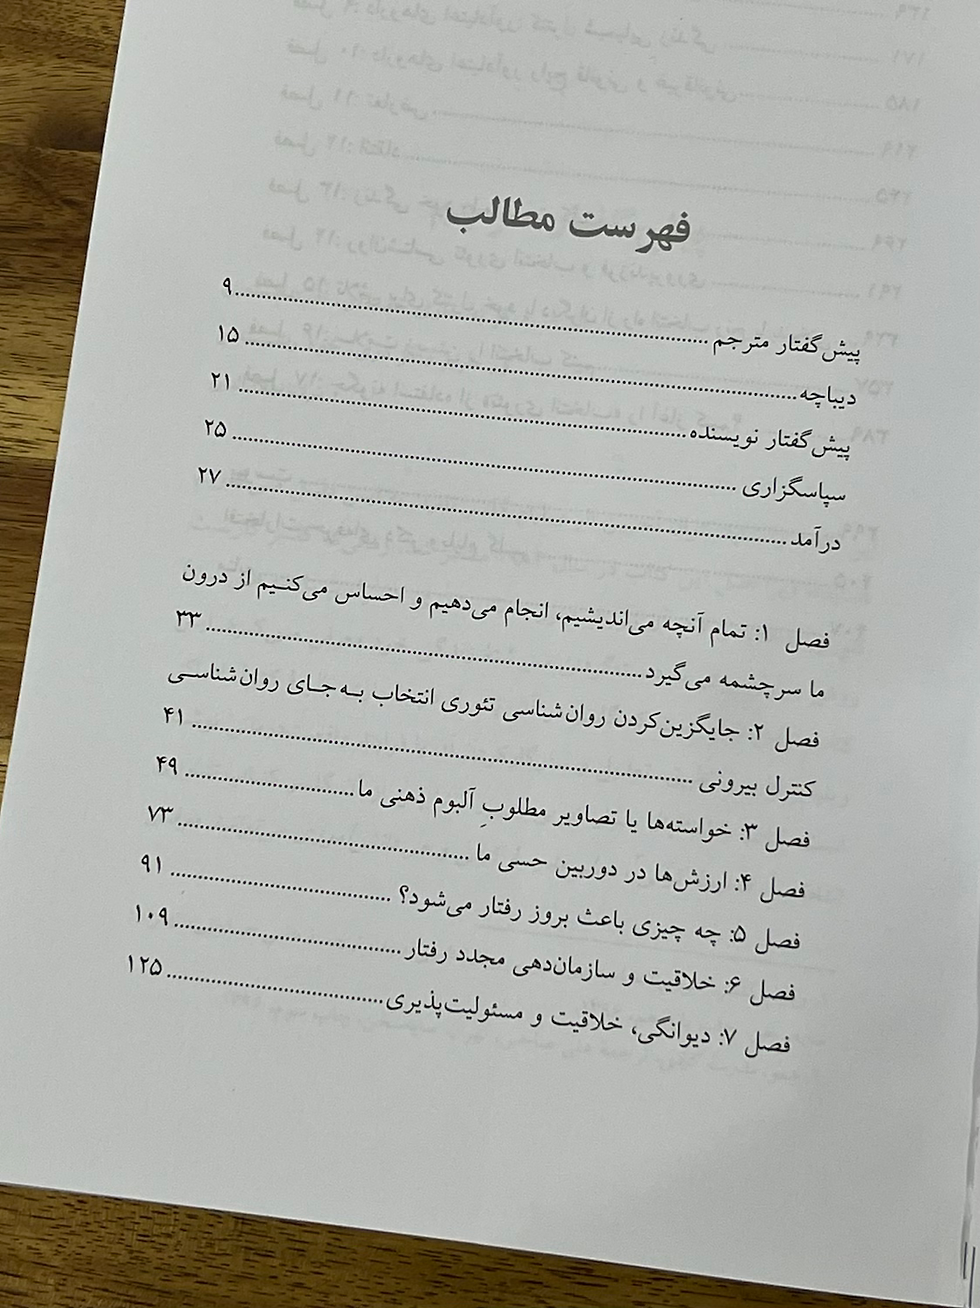 فهرست مطالب
پیش‌گفتار مترجم ........ ۹
دیباچه ........ ۱۵
پیش‌گفتار نویسنده ........ ۲۱
سپاسگزاری ........ ۲۵
درآمد ........ ۲۷
فصل ۱: تمام آنچه می‌اندیشیم، انجام می‌دهیم و احساس می‌کنیم از درون
ما سرچشمه می‌گیرد ........ ۳۳
فصل ۲: جایگزین‌کردن روان‌شناسی تئوری انتخاب به‌جای روان‌شناسی
کنترل بیرونی ........ ۴۱
فصل ۳: خواسته‌ها یا تصاویر مطلوبِ آلبوم ذهنی ما ........ ۴۹
فصل ۴: ارزش‌ها در دوربین حسی ما ........ ۷۳
فصل ۵: چه چیزی باعث بروز رفتار می‌شود؟ ........ ۹۱
فصل ۶: خلاقیت و سازمان‌دهی مجدد رفتار ........ ۱۰۹
فصل ۷: دیوانگی، خلاقیت و مسئولیت‌پذیری ........ ۱۲۵